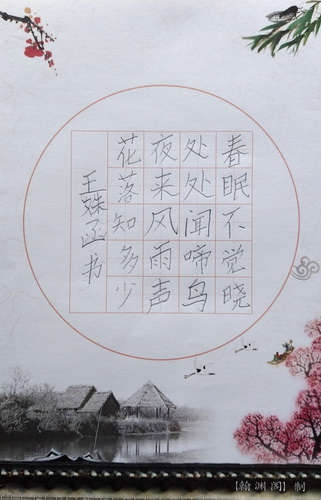 春眠不觉晓
处处闻啼鸟
夜来风雨声
花落知多少
王姝函书
【翰渊阁】制